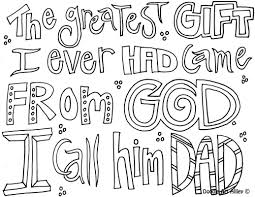 The greatest GIFT
I ever HAD came
FROM GOD.
I call him DAD
Doodle Art Alley ©